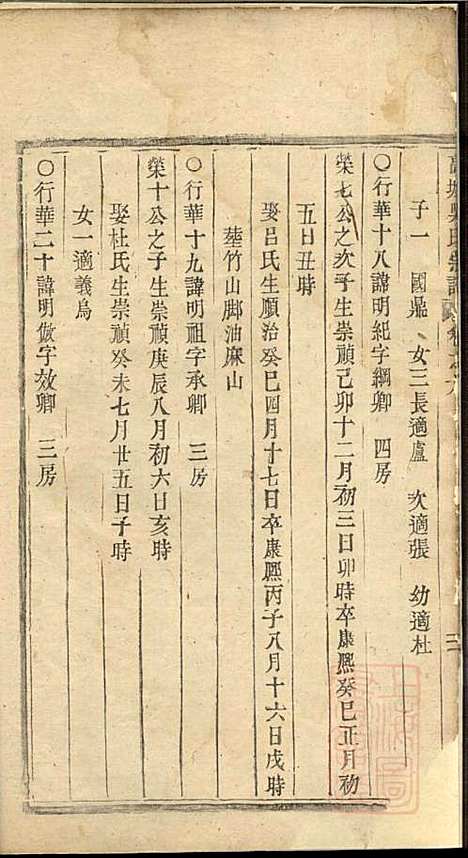 吳氏宗譜
子一　國鼎　女三長適盧　次適張　幼適杜
〇行華十八諱明紀字綱卿　四房
榮七公之次子生崇禎己卯十二月初三日卯時卒康熙癸巳正月初
五日丑時
娶呂氏生順治癸巳四月十七日卒康熙丙子八月十六日戌時
塟竹山脚油麻山
〇行華十九諱明祖字承卿　三房
榮十公之子生崇禎庚辰八月初六日亥時
娶杜氏生崇禎癸未七月廿五日子時
女一適義烏
〇行華二十諱明倣字效卿　三房